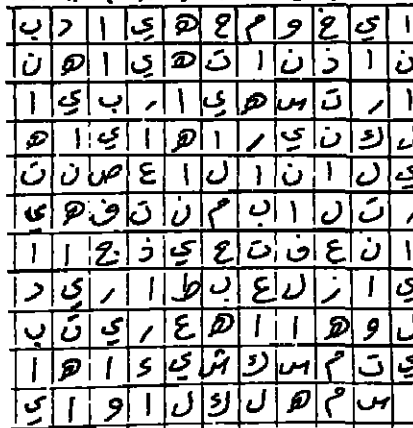 ا ي خ و م ح ه ي ا د ب
ن ا ذ ن ا ت ه ي ا ه ن
ا ر ت س ه ي ا ر ب ي ا
ل ك ن ي ر ا ه ا ي ا ه
ي ل ا ن ا ل ا ع ص ن ت
ر ت ل ا ب م ن ت ف ه ي
ا ن ع ف ت ع ي ذ ج ا ا
ي ا ز ل ع ب ط ا ر ي د
ل و ه ا ا ه ع ر ي ت ب
ي ت م س ك ش ي ء ا ه ا
س م ه ل ك ل ا و ا ي